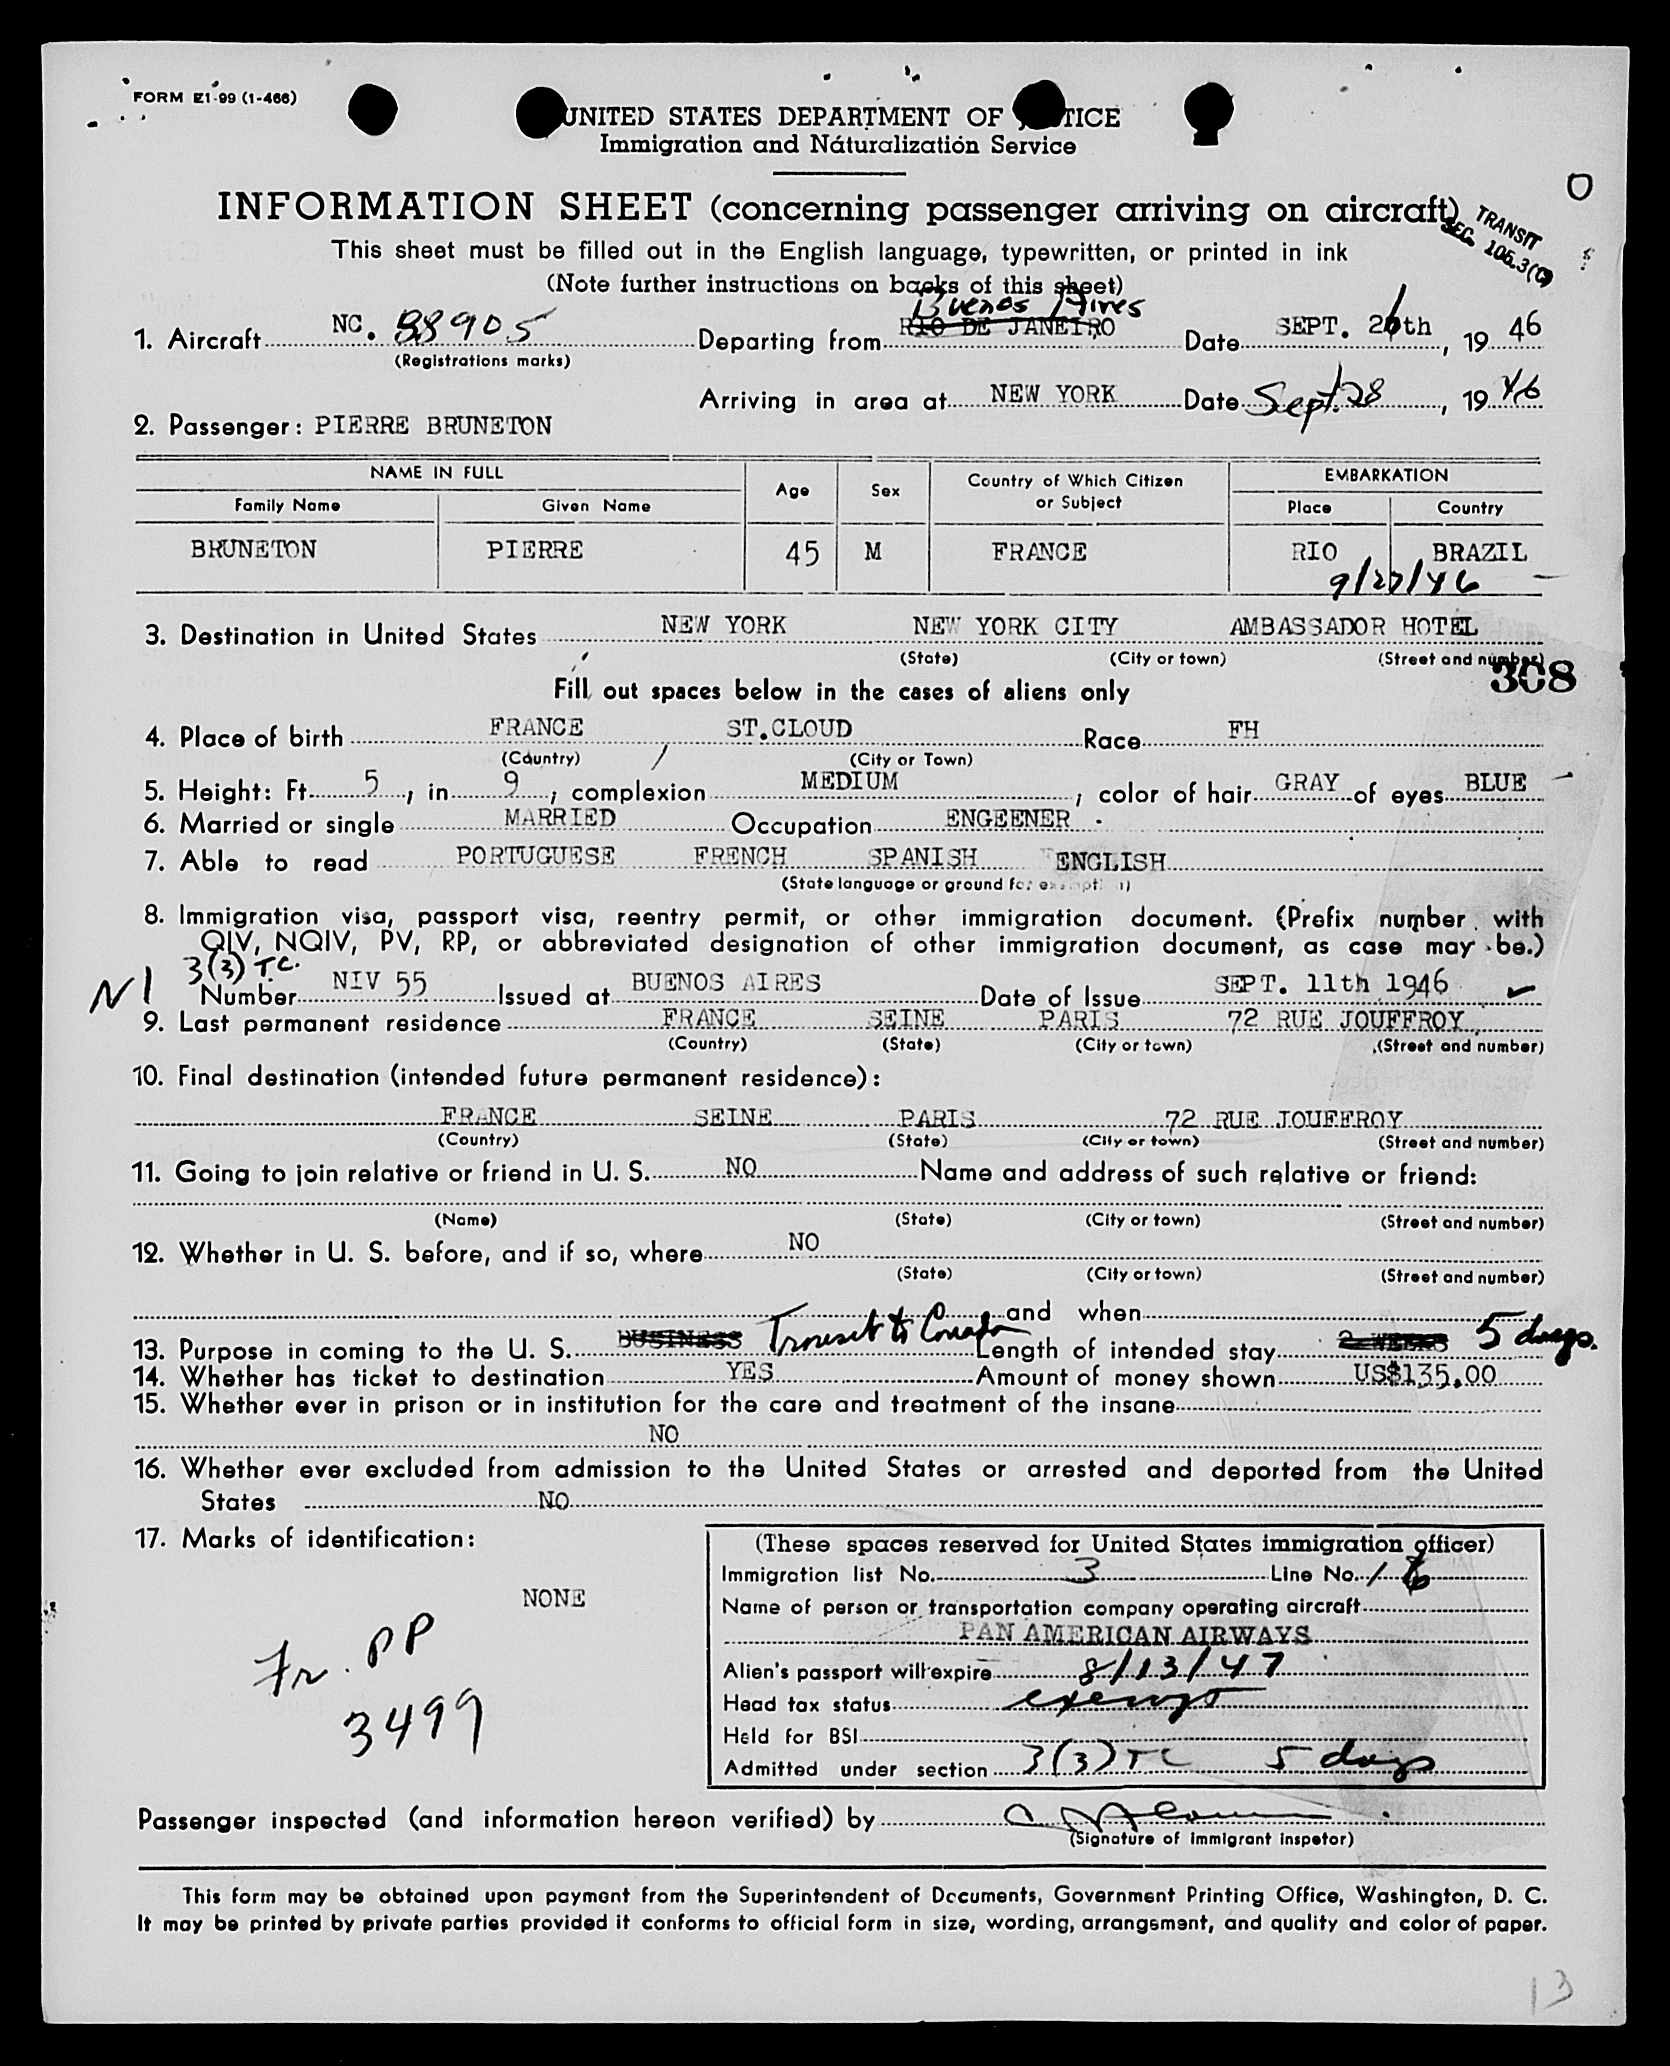 FORM EI-99 (1-466)
UNITED STATES DEPARTMENT OF JUSTICE
Immigration and Naturalization Service
O
INFORMATION SHEET (concerning passenger arriving on aircraft)
TRANSIT
SEC. 106.3(C)
This sheet must be filled out in the English language, typewritten, or printed in ink
(Note further instructions on backs of this sheet)
Buenos Aires
1. Aircraft NC. 88905 Departing from RIO DE JANEIRO Date SEPT. 26th, 19 46
(Registrations marks)
Arriving in area at NEW YORK Date Sept. 28, 19 46
2. Passenger: PIERRE BRUNETON
NAME IN FULL Age Sex Country of Which Citizen or Subject EMBARKATION
Family Name Given Name Place Country
BRUNETON PIERRE 45 M FRANCE RIO BRAZIL
9/27/46
3. Destination in United States NEW YORK NEW YORK CITY AMBASSADOR HOTEL
(State) (City or town) (Street and number)
308
Fill out spaces below in the cases of aliens only
4. Place of birth FRANCE ST.CLOUD Race FH
(Country) (City or Town)
5. Height: Ft. 5, in. 9; complexion MEDIUM; color of hair GRAY of eyes BLUE
6. Married or single MARRIED Occupation ENGEENER
7. Able to read PORTUGUESE FRENCH SPANISH ENGLISH
(State language or ground for exemption)
8. Immigration visa, passport visa, reentry permit, or other immigration document. (Prefix number with
QIV, NQIV, PV, RP, or abbreviated designation of other immigration document, as case may be.)
3(3) T.C.
N I Number NIV 55 Issued at BUENOS AIRES Date of Issue SEPT. 11th 1946
9. Last permanent residence FRANCE SEINE PARIS 72 RUE JOUFFROY
(Country) (State) (City or town) (Street and number)
10. Final destination (intended future permanent residence):
FRANCE SEINE PARIS 72 RUE JOUFFROY
(Country) (State) (City or town) (Street and number)
11. Going to join relative or friend in U. S. NO Name and address of such relative or friend:
(Name) (State) (City or town) (Street and number)
12. Whether in U. S. before, and if so, where NO
(State) (City or town) (Street and number)
and when
13. Purpose in coming to the U. S. BUSINESS Transit to Canada Length of intended stay 2 WEEKS 5 days.
14. Whether has ticket to destination YES Amount of money shown US$135.00
15. Whether ever in prison or in institution for the care and treatment of the insane
NO
16. Whether ever excluded from admission to the United States or arrested and deported from the United
States NO
17. Marks of identification:
NONE
Fr. PP
3499
(These spaces reserved for United States immigration officer)
Immigration list No. 3 Line No. 1
Name of person or transportation company operating aircraft
PAN AMERICAN AIRWAYS
Alien's passport will expire 8/13/47
Head tax status exempt
Held for BSI
Admitted under section 3(3) TC 5 days
Passenger inspected (and information hereon verified) by
(Signature of immigrant inspetor)
This form may be obtained upon payment from the Superintendent of Documents, Government Printing Office, Washington, D. C.
It may be printed by private parties provided it conforms to official form in size, wording, arrangement, and quality and color of paper.
13